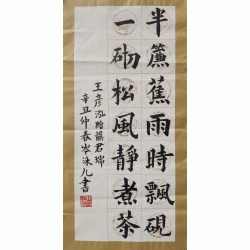 半簾蕉雨時飄硯
一砌松風靜煮茶
王彥泓贈蔡君瑞
辛丑仲春岑泳凡書